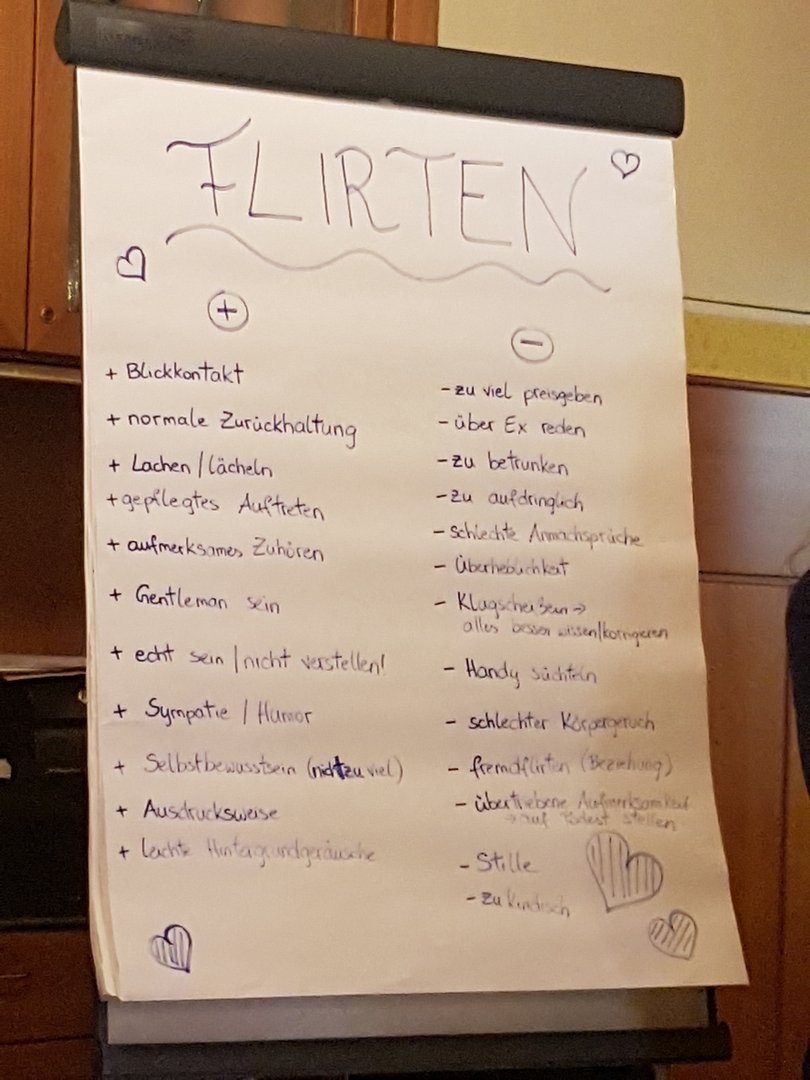 FLIRTEN
+
+ Blickkontakt
+ normale Zurückhaltung
+ Lachen / lächeln
+ gepflegtes Auftreten
+ aufmerksames Zuhören
+ Gentleman sein
+ echt sein / nicht verstellen!
+ Sympatie / Humor
+ Selbstbewusstsein (nicht zu viel)
+ Ausdrucksweise
+ leichte Hintergrundgeräusche
-
- zu viel preisgeben
- über Ex reden
- zu betrunken
- zu aufdringlich
- schlechte Anmachsprüche
- Überheblichkeit
- Klugscheißen →
alles besser wissen/korrigieren
- Handy süchteln
- schlechter Körpergeruch
- fremdflirten (Beziehung)
- übertriebene Aufmerksamkeit
→ auf Podest stellen
- Stille
- zu kindisch